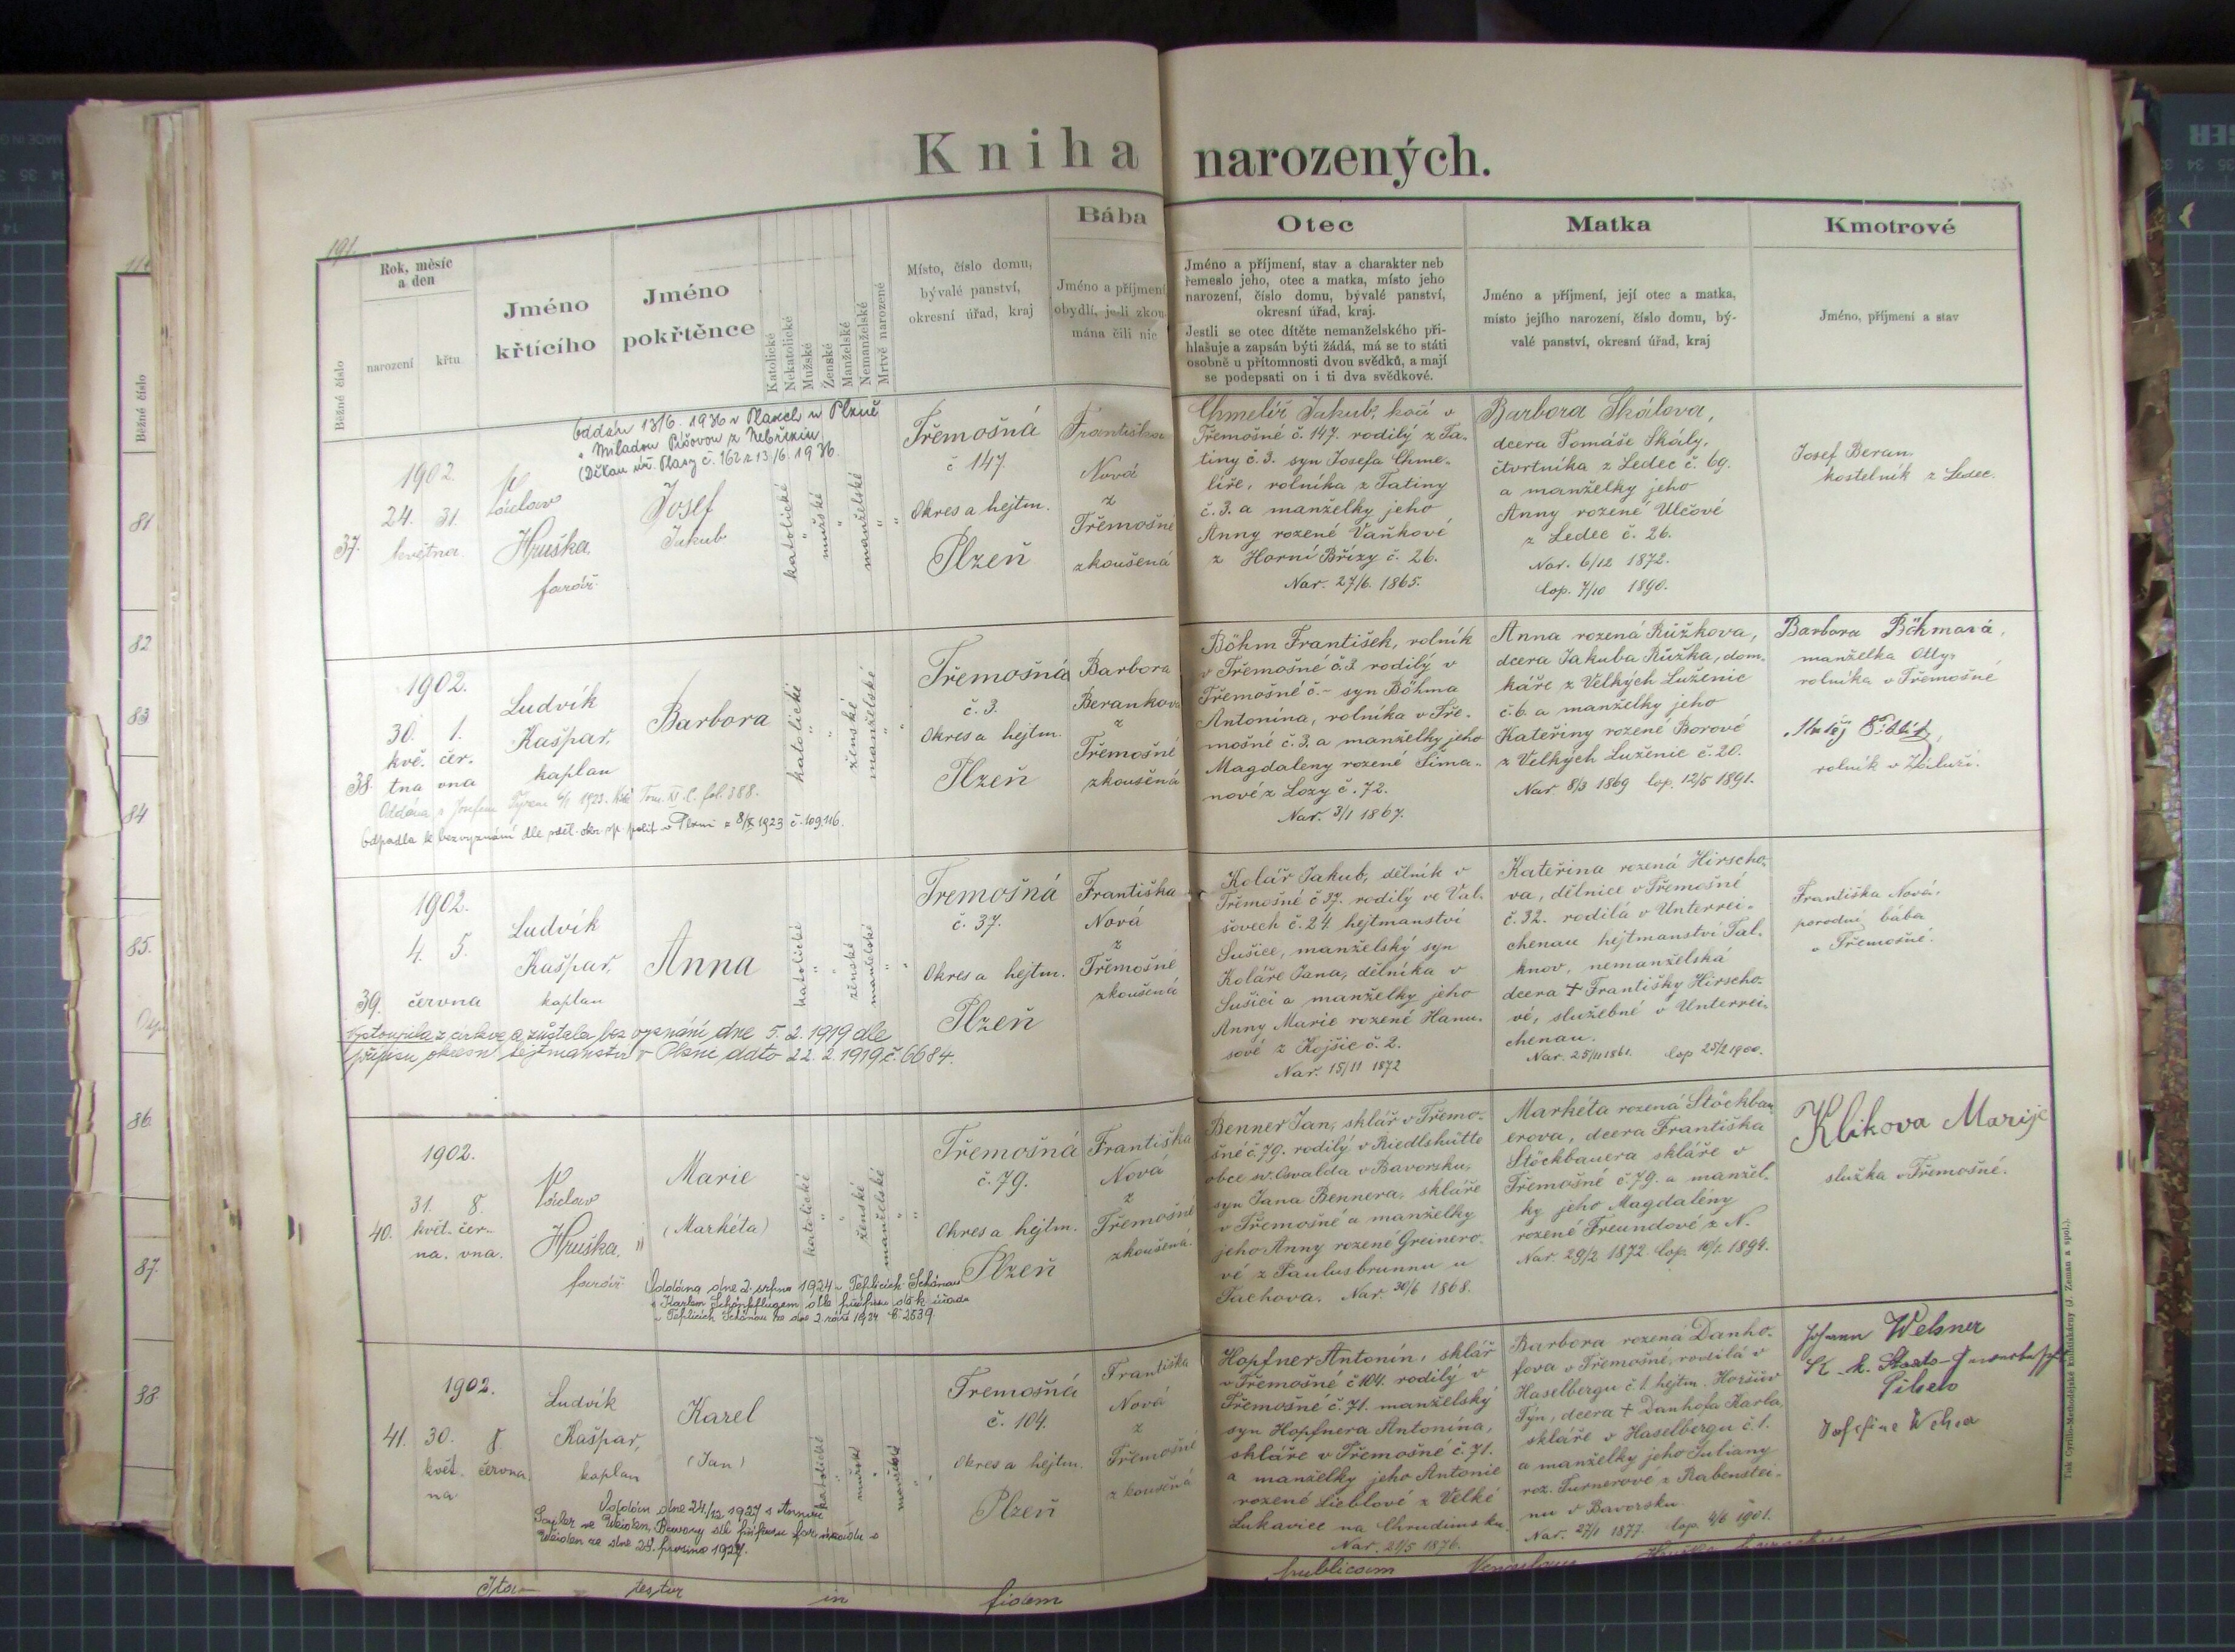 Kniha narozených.
191.
Běžné číslo
Rok, měsíc
a den
narození
křtu
Jméno
křtícího
Jméno
pokřtěnce
Katolické
Nekatolické
Mužské
Ženské
Manželské
Nemanželské
Mrtvě narozené
Místo, číslo domu,
bývalé panství,
okresní úřad, kraj
Bába
Jméno a příjmení
obydlí, je-li zkou-
mána čili nic
Otec
Jméno a příjmení, stav a charakter neb
řemeslo jeho, otec a matka, místo jeho
narození, číslo domu, bývalé panství,
okresní úřad, kraj.
Jestli se otec dítěte nemanželského při-
hlašuje a zapsán býti žádá, má se to státi
osobně u přítomnosti dvou svědků, a mají
se podepsati on i ti dva svědkové.
Matka
Jméno a příjmení, její otec a matka,
místo jejího narození, číslo domu, bý-
valé panství, okresní úřad, kraj
Kmotrové
Jméno, příjmení a stav
Oddán 13/6. 1936 v Plasích u Plzně
s Miladou Píšovou z Nebřezin
(Děkan. úř. Plasy č. 162 z 13./6. 1936.
37.
1902.
24. 31.
května
Václav
Hruška,
farář
Josef
Jakub
katolické
mužské
manželské
Třemošná
č 147.
Okres a hejtm.
Plzeň
Františka
Nová
z
Třemošné
zkoušená
Chmelíř Jakub, kočí v
Třemošné č. 147. rodilý z Ta-
tiny č. 3. syn Josefa Chme-
líře, rolníka z Tatiny
č. 3. a manželky jeho
Anny rozené Vaňkové
z Horní Břízy č. 26.
Nar. 27/6. 1865.
Barbora Skálova,
dcera Tomáše Skály,
čtvrtníka z Ledec č. 69.
a manželky jeho
Anny rozené Ulčové
z Ledec č. 26.
Nar. 6/12 1872.
Cop. 7/10 1890.
Josef Beran
kostelník z Ledec.
38.
1902.
30. 1.
kvě- čer-
tna vna
Ludvík
Kašpar,
kaplan
Barbora
katolické
ženské
manželské
Třemošná
č. 3.
Okres a hejtm.
Plzeň
Barbora
Berankova
z
Třemošné
zkoušená
Böhm František, rolník
v Třemošné č. 3 rodilý v
Třemošné č. - syn Böhma
Antonína, rolníka v Tře-
mošné č. 3. a manželky jeho
Magdaleny rozené Šima-
nové z Lozy č. 72.
Nar. 3/1 1867.
Anna rozená Růžkova,
dcera Jakuba Růžka, dom-
káře z Velkých Luženic
č. 6. a manželky jeho
Kateřiny rozené Borové
z Velkých Luženic č. 20.
Nar 8/3 1869 Cop. 12/5 1891.
Barbora Böhmová,
manželka
rolníka v Třemošné
rolník v Záluží.
Oddána s Josefem 1923. Tom. XI. C. fol. 388.
Odpadla k bezvyznání dle sděl. okr. sp. polit v Plzni z 8/X 1923 č. 109.116.
39.
1902.
4. 5.
června
Ludvík
Kašpar,
kaplan
Anna
katolické
ženské
manželské
Třemošná
č. 37.
Okres a hejtm.
Plzeň
Františka
Nová
z
Třemošné
zkoušená
Kolář Jakub, dělník v
Třemošné č 37. rodilý ve Vol-
šovech č. 24 hejtmanství
Sušice, manželský syn
Koláře Jana, dělníka v
Sušici a manželky jeho
Anny Marie rozené Hanu-
sové z Kojšic č. 2.
Nar. 15/11 1872
Kateřina rozená Hirscho-
va, dělnice v Třemošné
č. 32. rodilá v Unterrei-
chenau hejtmanství Fal-
knov, nemanželská
dcera † Františky Hirscho-
vé, služebné v Unterrei-
chenau.
Nar. 25/11 1861. Cop 25/2 1900.
Františka Nová,
porodní bába
v Třemošné.
Vystoupila z církve a zůstala bez vyznání dne 5. 2. 1919 dle
přípisu okresn hejtmanství v Plzni ddto 22. 2. 1919 č. 6684.
40.
1902.
31. 8.
květ- čer-
na. vna.
Václav
Hruška,
farář
Marie
(Markéta)
katolické
ženské
manželské
Třemošná
č. 79.
Okres a hejtm.
Plzeň
Františka
Nová
z
Třemošné
zkoušená.
Benner Jan, sklář v Třemo-
šné č. 79. rodilý v Riedlshütte
obce sv. Osvalda v Bavorsku,
syn Jana Bennera, skláře
v Třemošné a manželky
jeho Anny rozené Greinero-
vé z Paulusbrunnu u
Tachova. Nar. 30/6 1868.
Markéta rozená Stöckbau
erova, dcera Františka
Stöckbauera skláře v
Třemošné č. 79. a manžel-
ky jeho Magdalény
rozené Freundové z N.
Nar. 29/2 1872. Cop. 10/1. 1894.
Klikova Marije
služka v Třemošné.
Oddána dne 2. srpna 1924 v Teplicích-Schönau
s Karlem Schöpflugem dle přípisu děk. úřadu
v Teplicích Schönau ze dne 2. září 1924 č. 2539.
41.
1902.
30. 8
květ- června.
na
Ludvík
Kašpar,
kaplan
Karel
(Jan)
katolické
mužské
manželské
Třemošná
č. 104.
Okres a hejtm.
Plzeň
Františka
Nová
z
Třemošné
zkoušená
Hopfner Antonín, sklář
v Třemošné č 104. rodilý v
Třemošné č. 71. manželský
syn Hopfnera Antonína,
skláře v Třemošné č. 71.
a manželky jeho Antonie
rozené Lieblové z Velké
Lukavice na Chrudimsku.
Nar. 21/5 1876.
Barbora rozená Danho-
fova v Třemošné, rodilá v
Haselbergu č. 1. hejtm. Horšův
Týn, dcera † Danhofa Karla,
skláře v Haselbergu č. 1.
a manželky jeho Juliany
roz. Turnerové z Rabenstei-
nu v Bavorsku.
Nar. 27/1 1877. Cop. 4/6 1901.
Johann Welsner
K. k. Staats-
Pilsen
Josefine
Oddán dne 24/12 1927 s Annou
ve Weiden, Bavory dle přípisu far. úřadu v
Weiden ze dne 28. prosince 1927.
Ita testor in fidem
publicam Venceslaus Hruška parochus
Tisk Cyrillo-Methodějské knihtiskárny (J. Zeman a spol.).
Běžné číslo
81
82
83
84
85.
86.
87.
88.